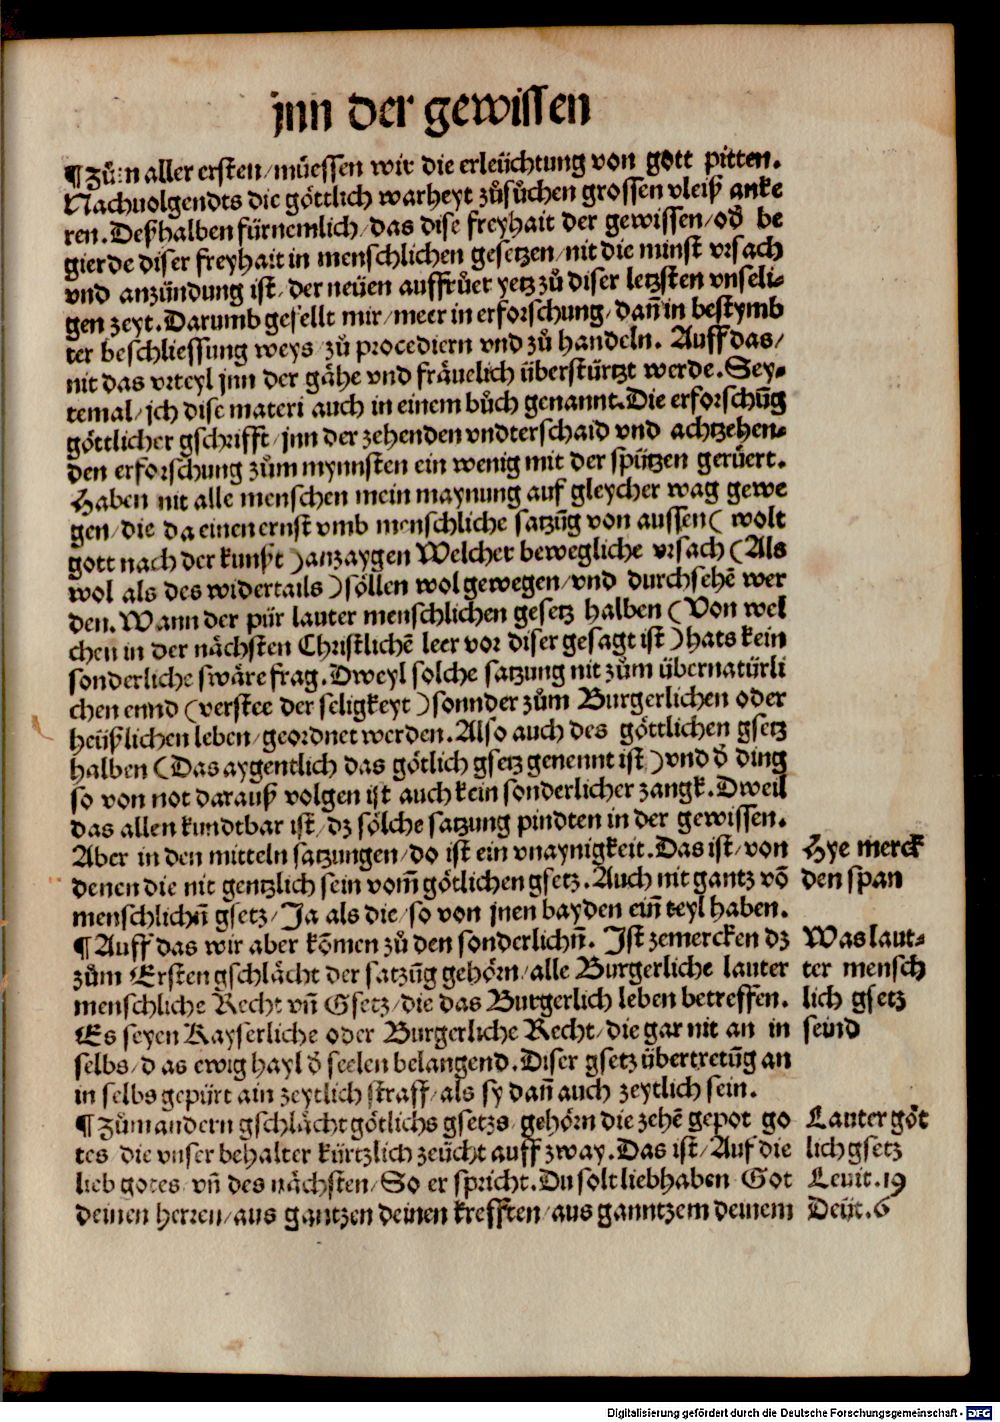 jnn der gewissen
¶Zům aller ersten/müessen wir die erleüchtung von gott pitten.
Nachuolgendts die göttlich warheyt zůsůchen grossen vleiß anke
ren. Deßhalben fürnemlich/das dise freyhait der gewissen/od̃ be
gierde diser freyhait in menschlichen gesetzen/nit die minst vrsach
vnd anzündung ist/der neüen auffrůer yetz zů diser letzsten vnseli-
gen zeyt. Darumb gefellt mir/meer in erforschung/dañ in bestymb
ter beschliessung weys/zů procediern vnd zů handeln. Auff das/
nit das vrteyl jnn der gähe vnd fräuelich überstürtzt werde. Sey-
temal/jch dise materi auch in einem bůch genannt. Die erforschũg
göttlicher gschrifft/jnn der zehenden vndterschaid vnd achtzehen-
den erforschung zům mynnsten ein wenig mit der spitzen gerüert.
Haben nit alle menschen mein maynung auf gleycher wag gewe
gen/die da einen ernst vmb menschliche satzũg von aussen( wolt
gott nach der kunst )anzaygen Welcher bewegliche vrsach (Als
wol als des widertails )söllen wol gewegen/vnd durchsehẽ wer
den. Wann der pür lauter menschlichen gesetz halben (Von wel
chen in der nächsten Christlichẽ leer vor diser gesagt ist )hats kein
sonderliche swäre frag. Dweyl solche satzung nit zům übernatürli
chen ennd (verstee der seligkeyt )sonnder zům Burgerlichen oder
heüßlichen leben/geordnet werden. Also auch des göttlichen gsetz
halben (Das aygentlich das götlich gsetz genennt ist )vnd d̃ ding
so von not darauß volgen ist auch kein sonderlicher zangk. Dweil
das allen kundtbar ist/dz sölche satzung pindten in der gewissen.
Aber in den mitteln satzungen/do ist ein vnaynigkeit. Das ist/von
denen die nit gentzlich sein vom̃ götlichen gsetz. Auch nit gantz võ
menschlichñ gsetz/Ja als die/so von jnen bayden eiñ teyl haben.
Hye merck
den span
¶Auff das wir aber kõmen zů den sonderlichñ. Ist zemercken dz
zům Ersten gschlächt der satzũg gehörn/alle Burgerliche lauter
menschliche Recht vñ Gsetz/die das Burgerlich leben betreffen.
Es seyen Kayserliche oder Burgerliche Recht/die gar nit an in
selbs/d as ewig hayl d̃ seelen belangend. Diser gsetz übertretũg an
in selbs gepürt ain zeytlich straff/als sy dañ auch zeytlich sein.
Was laut-
ter mensch
lich gsetz
seind
¶Zům andern gschlächt götlichs gsetzs/gehörn die zehẽ gepot go
tes/die vnser behalter kürtzlich zeücht auff zway. Das ist/Auf die
lieb gotes/vñ des nächsten/So er spricht. Du solt liebhaben Got
deinen herren/aus gantzen deinen krefften/aus ganntzem deinem
Lauter göt
lich gsetz
Leuit. 19
Deüt. 6
Digitalisierung gefördert durch die Deutsche Forschungsgemeinschaft - DFG